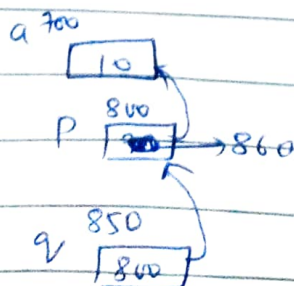 a 700
10
800
P → 860
850
q 800